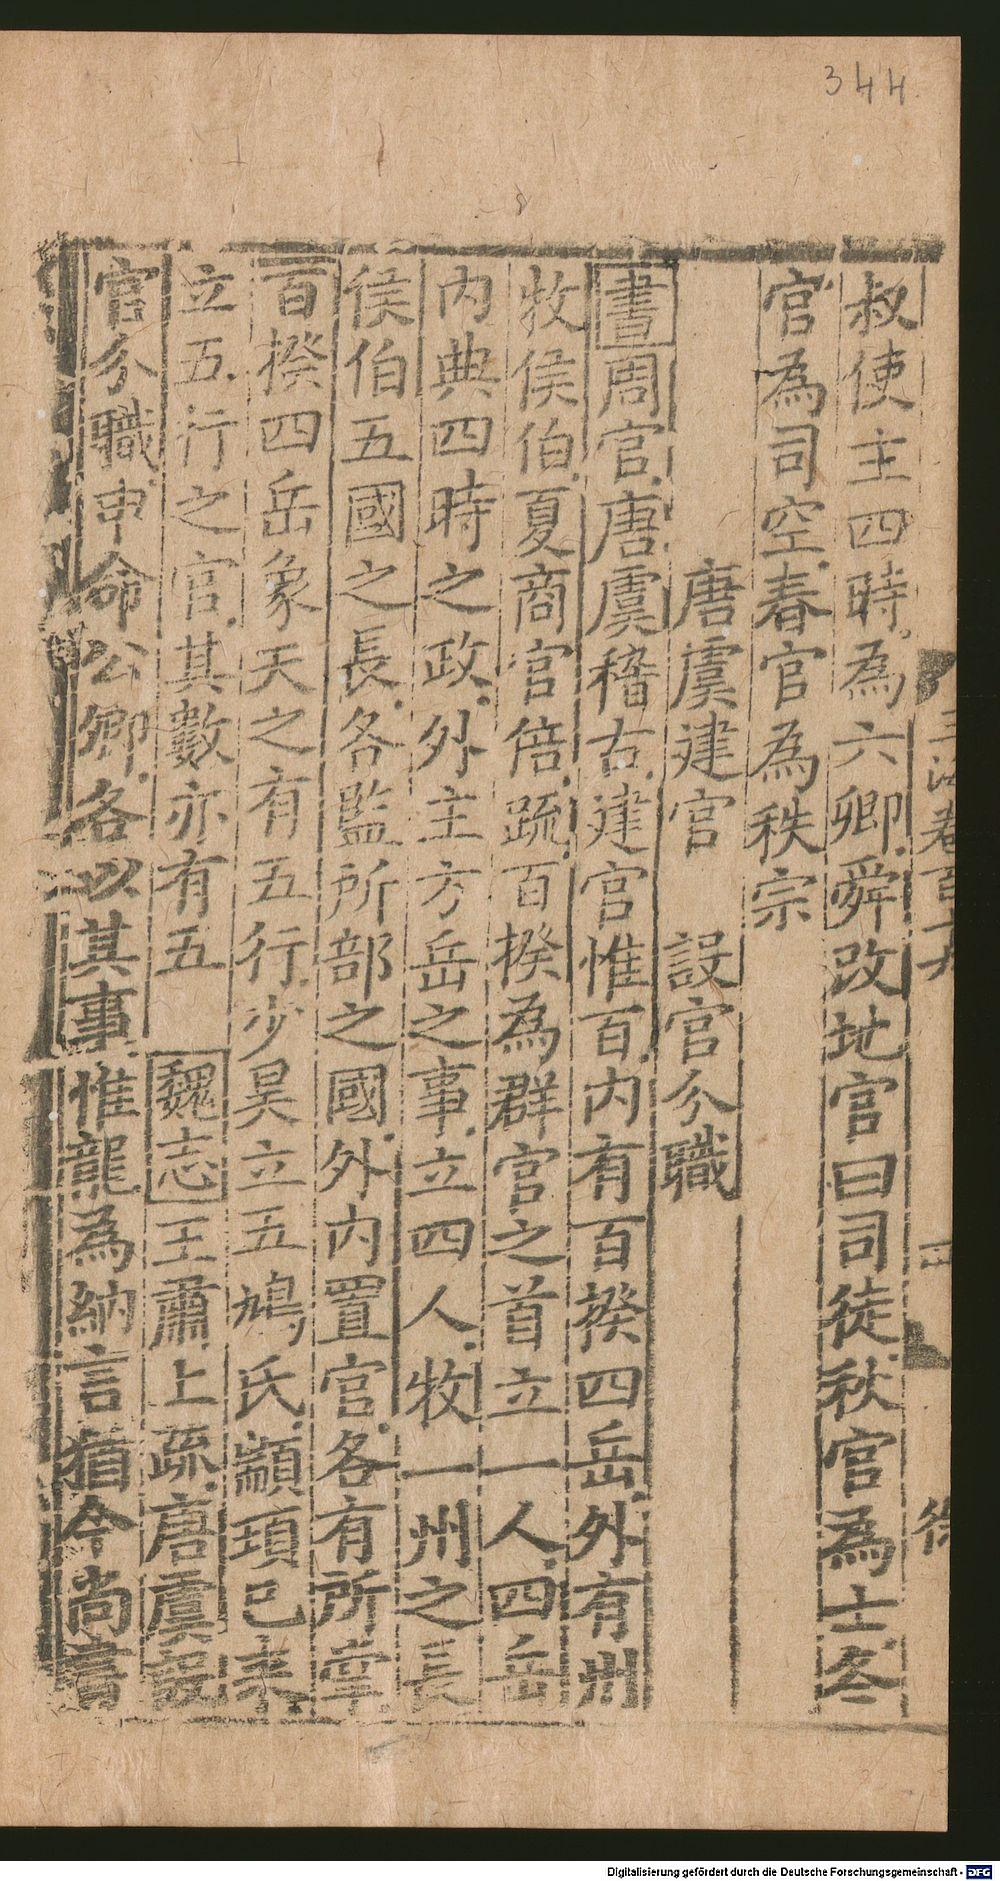 344
玉海卷百十九
三
徐
叔使主四時為六卿舜改地官曰司徒秋官為士冬
官為司空春官為秩宗
唐虞建官　設官分職
書周官唐虞稽古建官惟百內有百揆四岳外有州
牧侯伯夏商官倍疏百揆為群官之首立一人四岳
內典四時之政外主方岳之事立四人牧一州之長
侯伯五國之長各監所部之國外內置官各有所掌
百揆四岳象天之有五行少昊立五鳩氏顓頊已來
立五行之官其數亦有五　魏志王肅上疏唐虞設
官分職申命公卿各以其事惟龍為納言猶今尚書
Digitalisierung gefördert durch die Deutsche Forschungsgemeinschaft - DFG